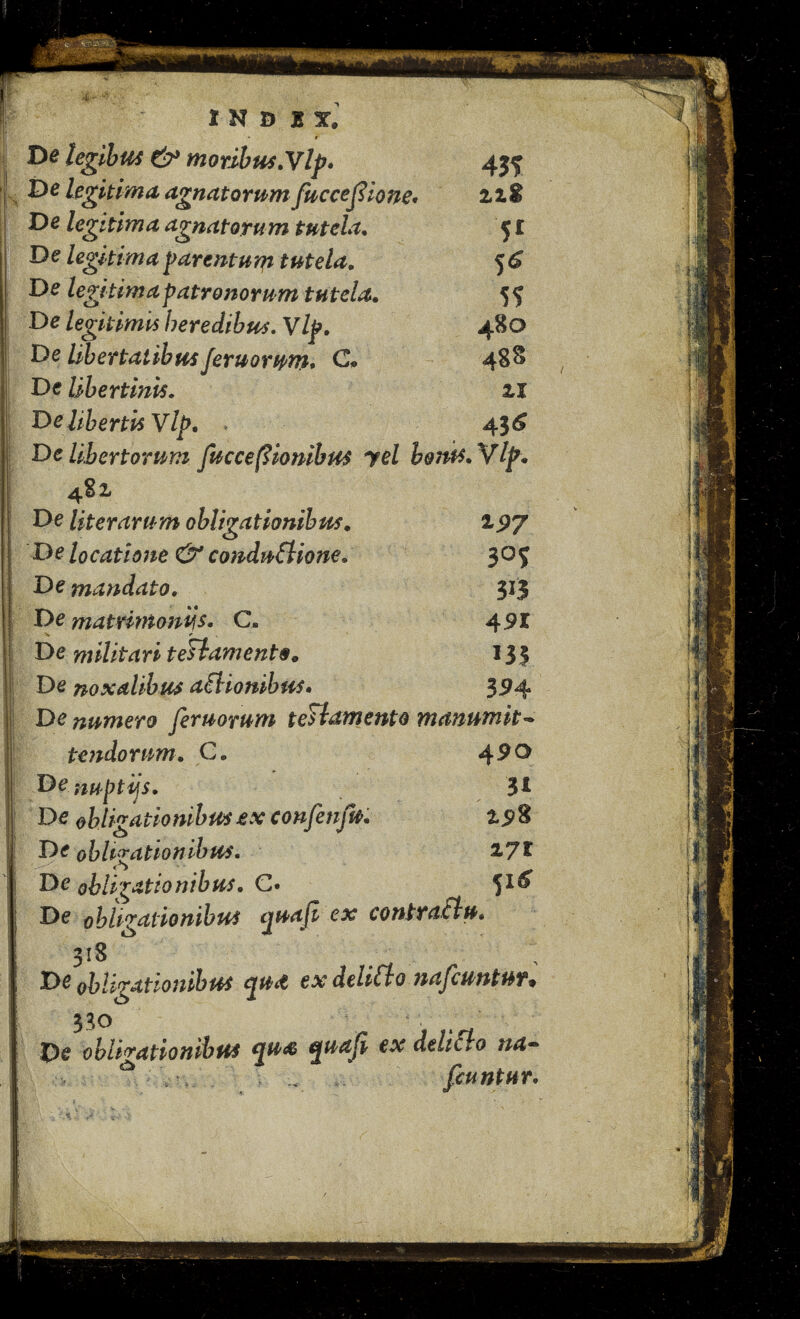 INDEX.
De legibus & moribus. Vlp. 435
De legitima agnatorum succeßione. 228
De legitima agnatorum tutela. 51
De legitima parentum tutela. 56
De legitima patronorum tutela. 55
De legitimis heredibus. Vlp. 480
De libertatibus seruorum. C. 488
De libertinis. 21
De libertis Vlp. 436
De libertorum succeßionibus vel bonis. Vlp.
482
De literarum obligationibus. 297
De locatione & conductione. 305
De mandato. 313
De matrimonijs. C. 491
De militari testamento. 133
De noxalibus actionibus. 394
De numero seruorum testamento manumit-
tendorum. C. 490
De nuptijs. 31
De obligationibus ex consensu. 298
De obligationibus. 271
De obligationibus. C. 516
De obligationibus quasi ex contractu.
318
De obligationibus quæ ex delicto nascuntur.
330
De obligationibus quæ quasi ex delicto na-
scuntur.